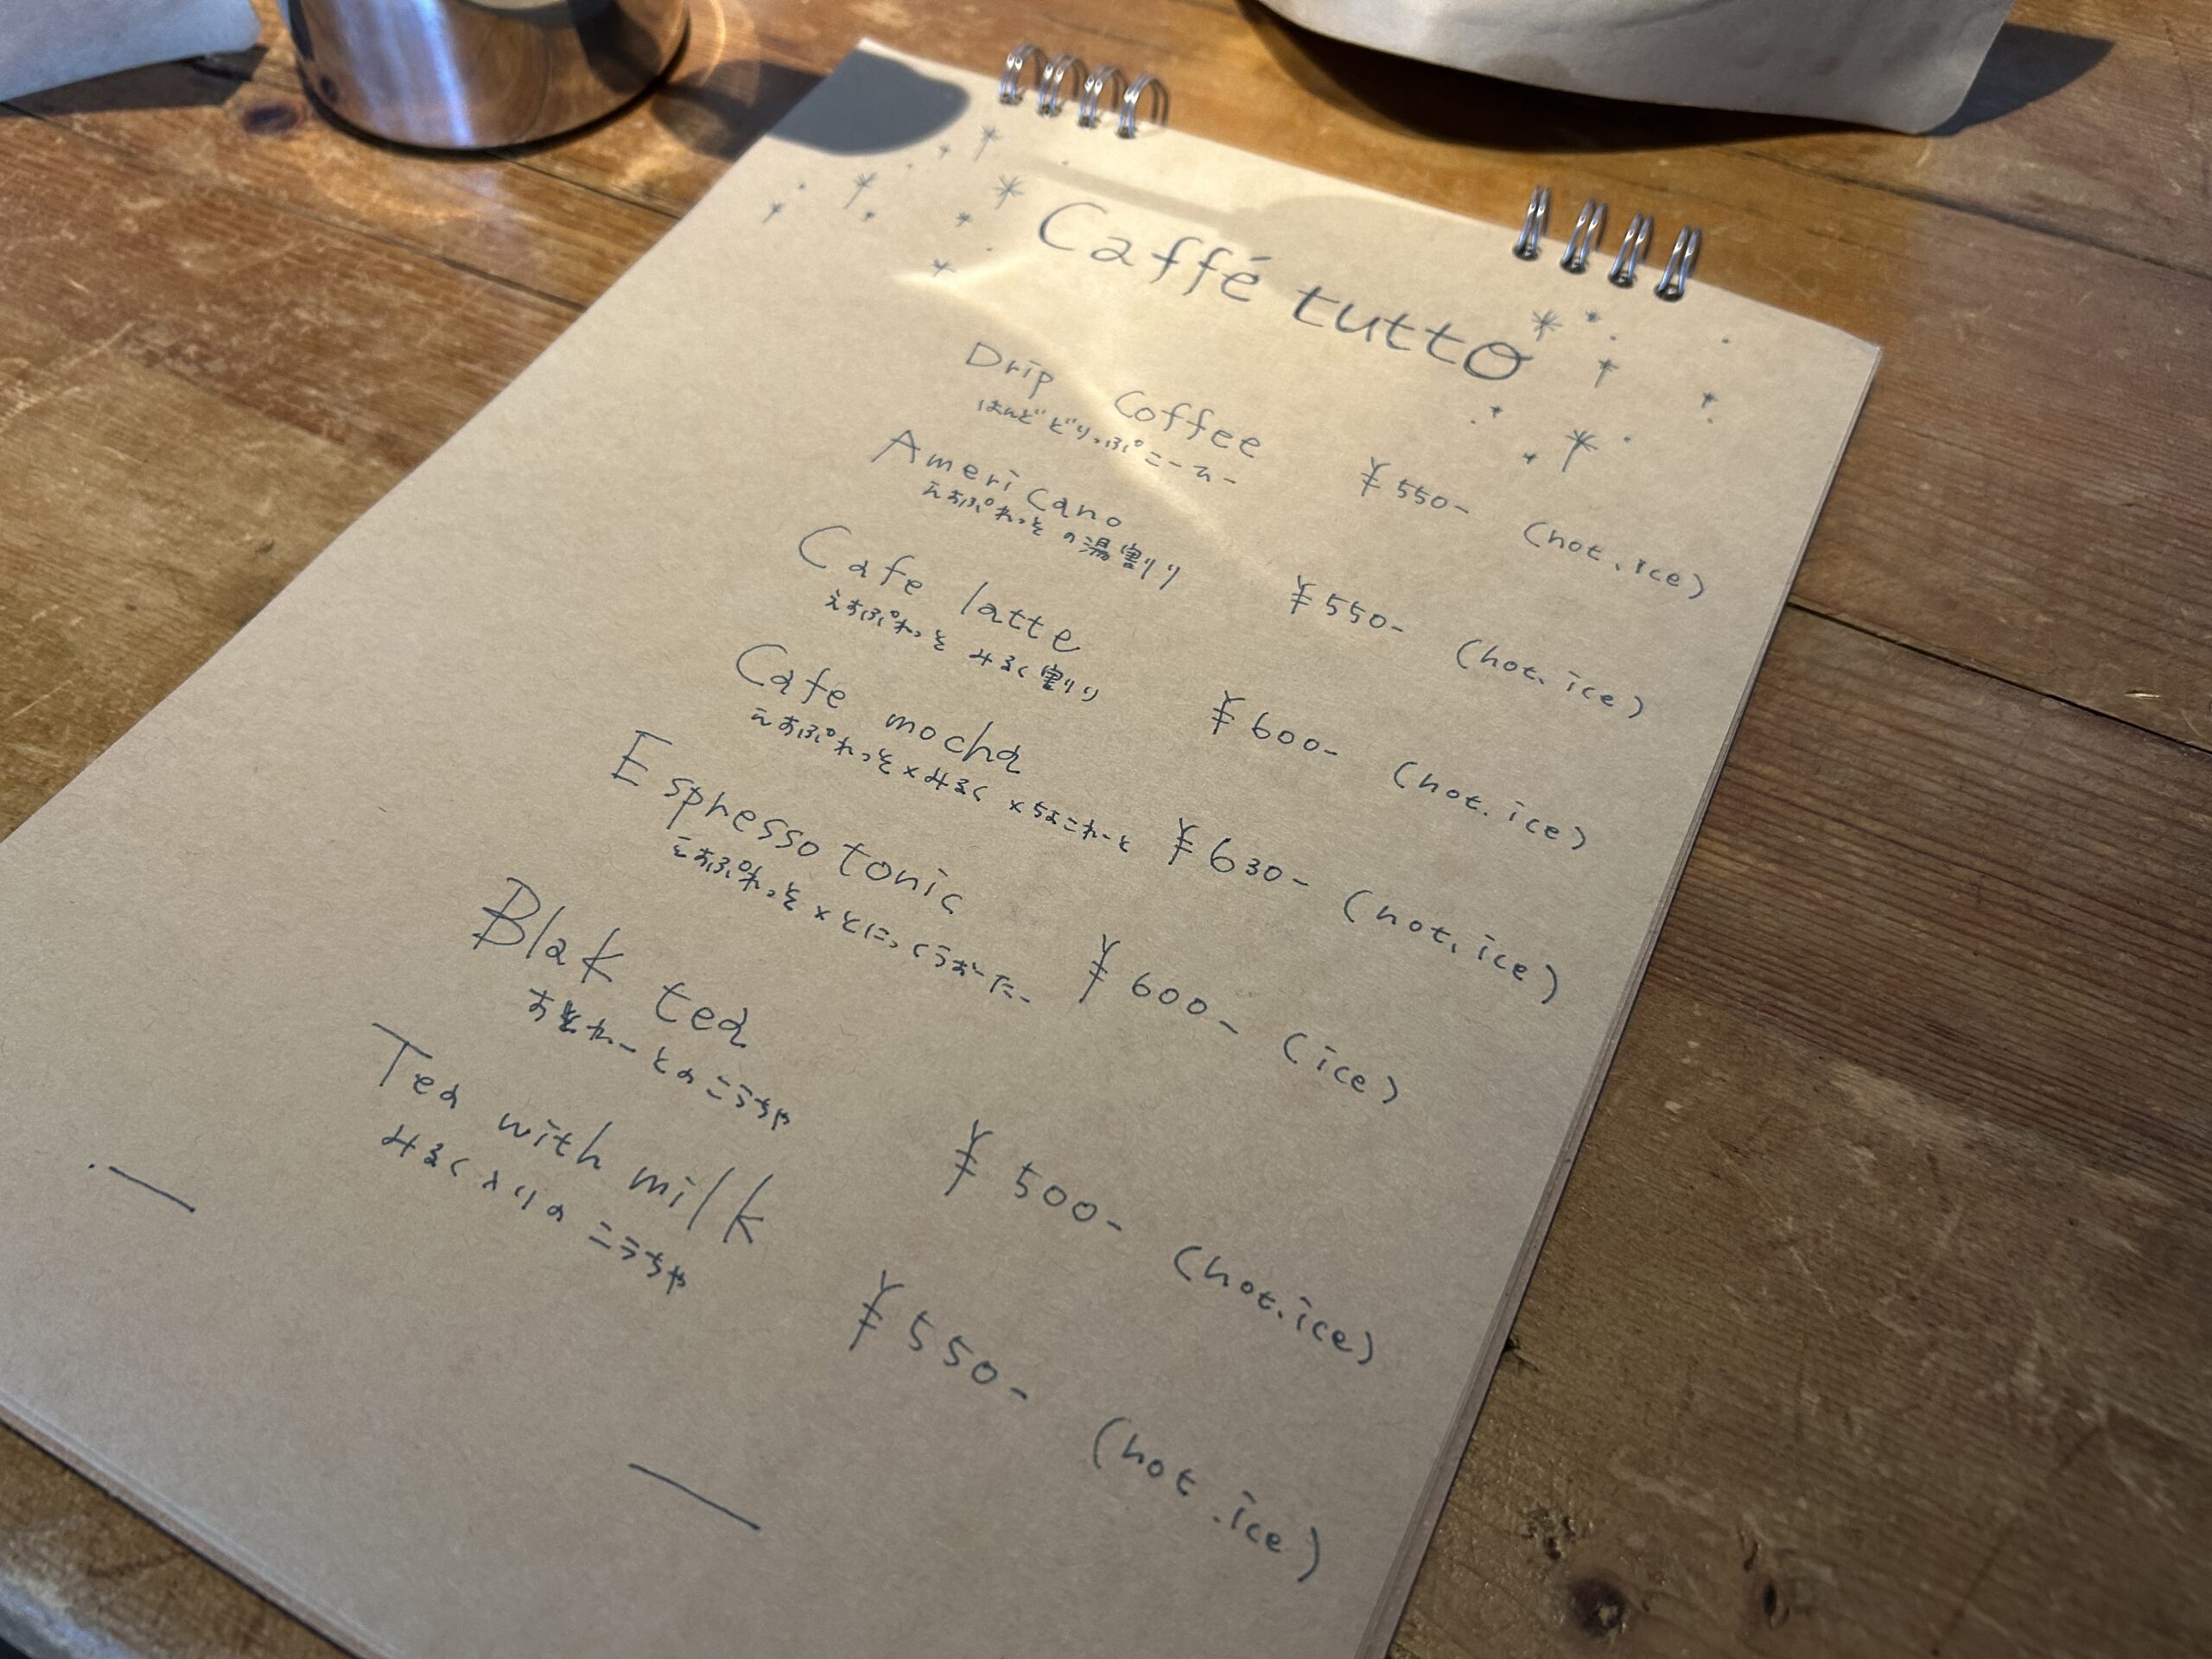 Caffé tutto
Drip Coffee ¥550- (hot, ice)
はんどどりっぷこーひー
Americano ¥550- (hot, ice)
えすぷれっその湯割り
Cafe latte ¥600- (hot. ice)
えすぷれっそ みるく割り
Cafe mocha ¥630- (hot, ice)
えすぷれっそ×みるく×ちょこれーと
Espresso tonic ¥600- (ice)
えすぷれっそ×とにっくうぉーたー
Blak tea ¥500- (hot.ice)
すとれーとのこうちゃ
Tea with milk ¥550- (hot.ice)
みるく入りのこうちゃ